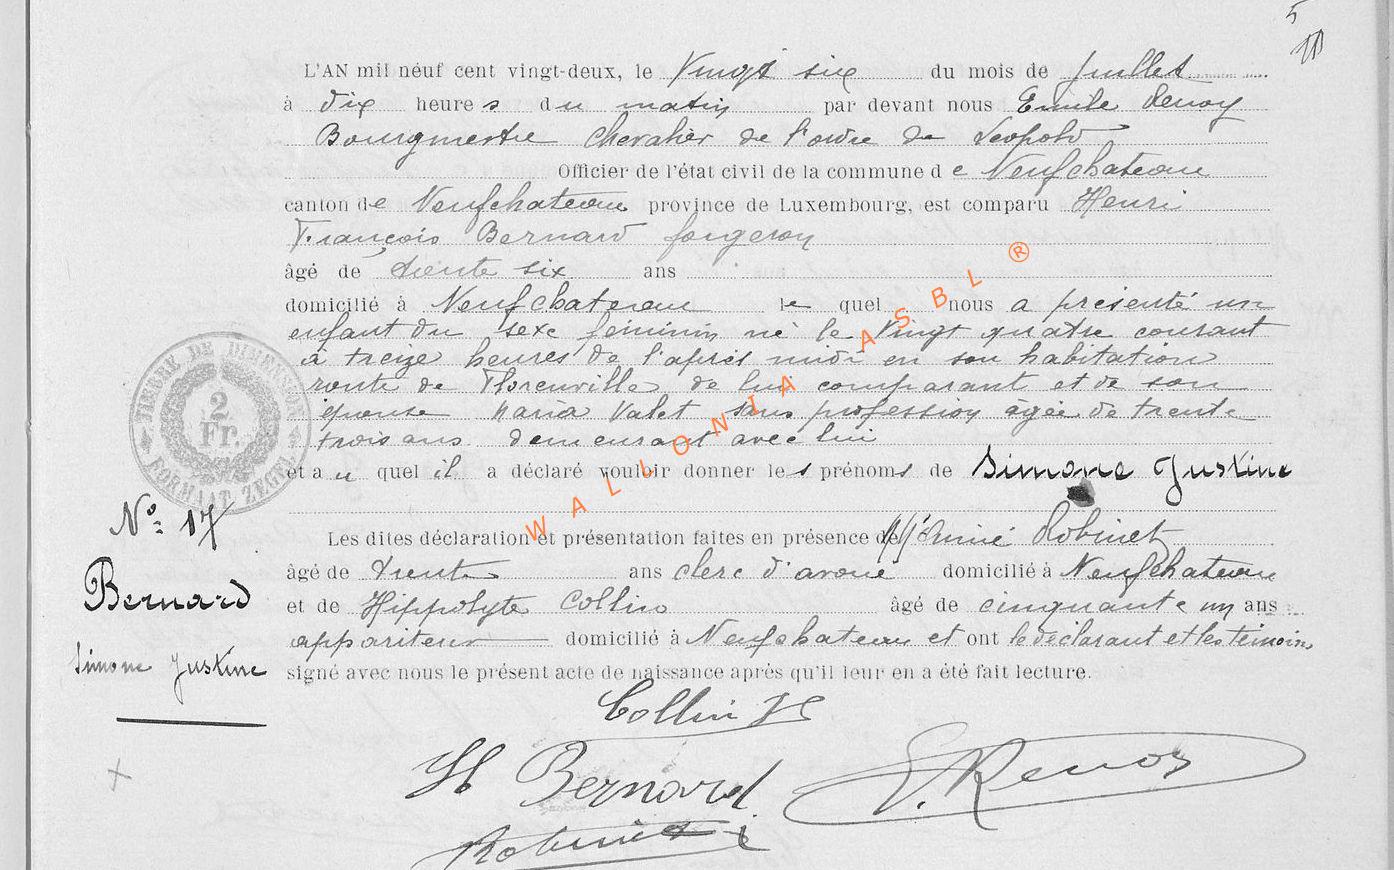 5
L'AN mil neuf cent vingt-deux, le Vingt six du mois de Juillet
à dix heures du matin par devant nous Emile Renoy
Bourgmestre Chevalier de l'ordre de Léopold
Officier de l'état civil de la commune de Neufchateau
canton de Neufchateau province de Luxembourg, est comparu Henri
François Bernard forgeron
âgé de trente six ans
domicilié à Neufchateau lequel nous a présenté un
enfant du sexe féminin né le Vingt quatre courant
à treize heures de l'après midi en son habitation
route de Florenville, de lui comparant et de son
épouse Maria Valet sans profession âgée de trente
trois ans demeurant avec lui
et auquel il a déclaré vouloir donner les prénoms de Simone Justine
TIMBRE DE DIMENSION
2 Fr.
FORMAAT ZEGEL
N° 17
Bernard
Simone Justine
Les dites déclaration et présentation faites en présence de Aimé Robinet
âgé de trente ans clerc d'avoué domicilié à Neufchateau
et de Hippolyte Collin âgé de cinquante un ans
appariteur domicilié à Neufchateau et ont le déclarant et les témoins
signé avec nous le présent acte de naissance après qu'il leur en a été fait lecture.
Collin H
H Bernard
E. Renoy
Robinet
WALLONIA ASBL ®